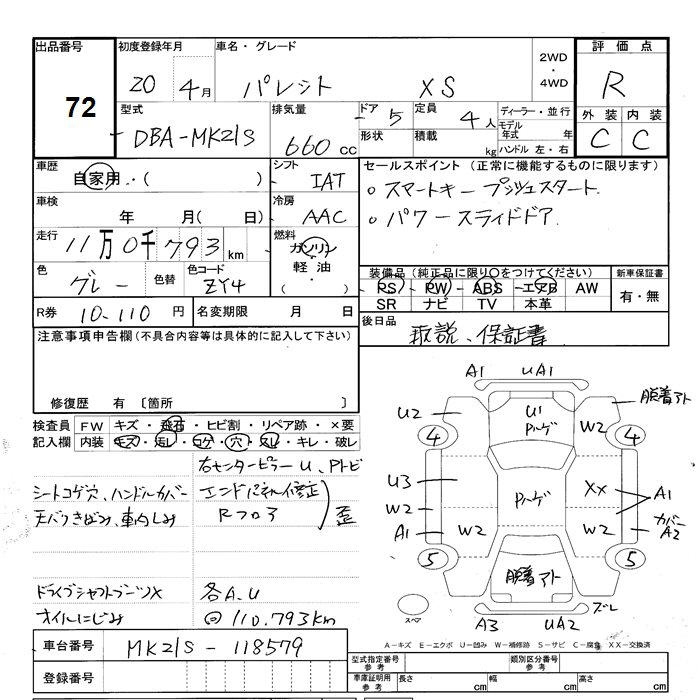 出品番号 初度登録年月 車名・グレード 2WD・4WD 評価点
72 20 4月 パレット XS R
型式 排気量 ドア 5 定員 4人 ディーラー・並行 外装 内装
DBA-MK21S 660cc 形状 積載 kg モデル年式 年 C C
ハンドル 左・右
車歴 シフト セールスポイント (正常に機能するものに限ります)
自家用・( ) IAT 。スマートキー プッシュスタート
車検 冷房 。パワースライドドア
年 月( 日) AAC
走行 燃料
11万0千793km ガソリン
色 色替 色コード 軽油 装備品 (純正品に限り〇をつけてください) 新車保証書
グレー ZY4 ・( ) PS PW ABS エアB AW 有・無
SR ナビ TV 本革
R券 10-110円 名変期限 月 日 後日品
取説、保証書
注意事項申告欄(不具合内容等は具体的に記入して下さい)
修復歴 有 〔箇所 〕
検査員記入欄 FW キズ・飛石・ヒビ割・リペア跡・×要
内装 キズ・汚レ・コゲ・穴・スレ・キレ・破レ
右センターピラーU、Pトビ
シートコゲ穴、ハンドルカバー エンドパネル修正
天バリきばみ、車内しみ Rフロア 歪
ドライブシャフトブーツX 各A.U
オイルにじみ ◎110.793km
A1 UA1
脱着アト
U2 U1 W2
Pハゲ
4 4
U3 Pハゲ XX A1
W2
A1 W2 W2 カバーA2
5 5
脱着アト
スペア A3 UA2 ズレ
車台番号 MK21S-118579
A-キズ E-エクボ U-凹み W-補修跡 S-サビ C-腐食 XX-交換済
登録番号 型式指定番号参考 類別区分番号参考
車庫証明用参考 長さ cm 幅 cm 高さ cm